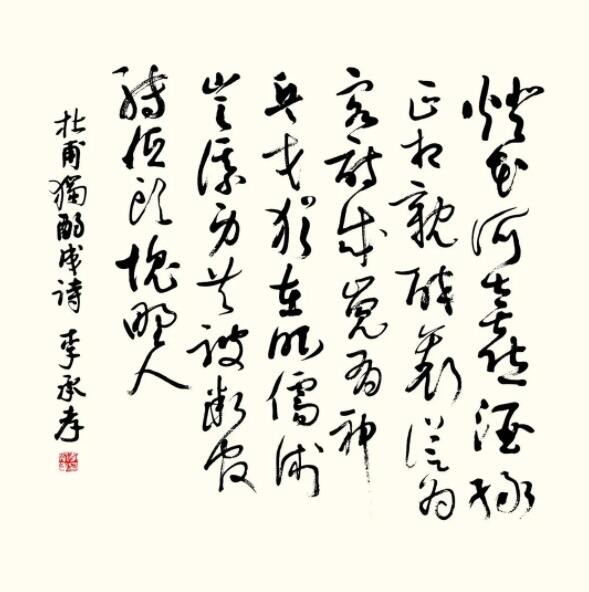 燈花何太喜酒緑
正相親醉裏從為
客詩成覺有神
兵戈猶在眼儒術
豈謀身共被微官
縛低頭愧野人
杜甫獨酌成詩 李承孝